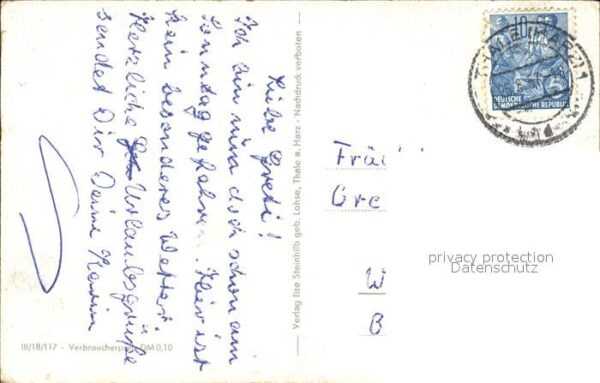 Liebe Greti!
Ich bin nun doch schon am
Sonntag gefahren. Hier ist
kein besonderes Wetter.
Herzliche Urlaubsgrüße
sendet Dir Deine Karin
III/18/117 - Verbraucherpreis DM 0,10
Verlag Ilse Steinhilb geb. Lohse, Thale a. Harz · Nachdruck verboten
10
DEUTSCHE
DEMOKRATISCHE REPUBLIK
THALE (HARZ) 1
Fräu
Gre
W
B
privacy protection
Datenschutz